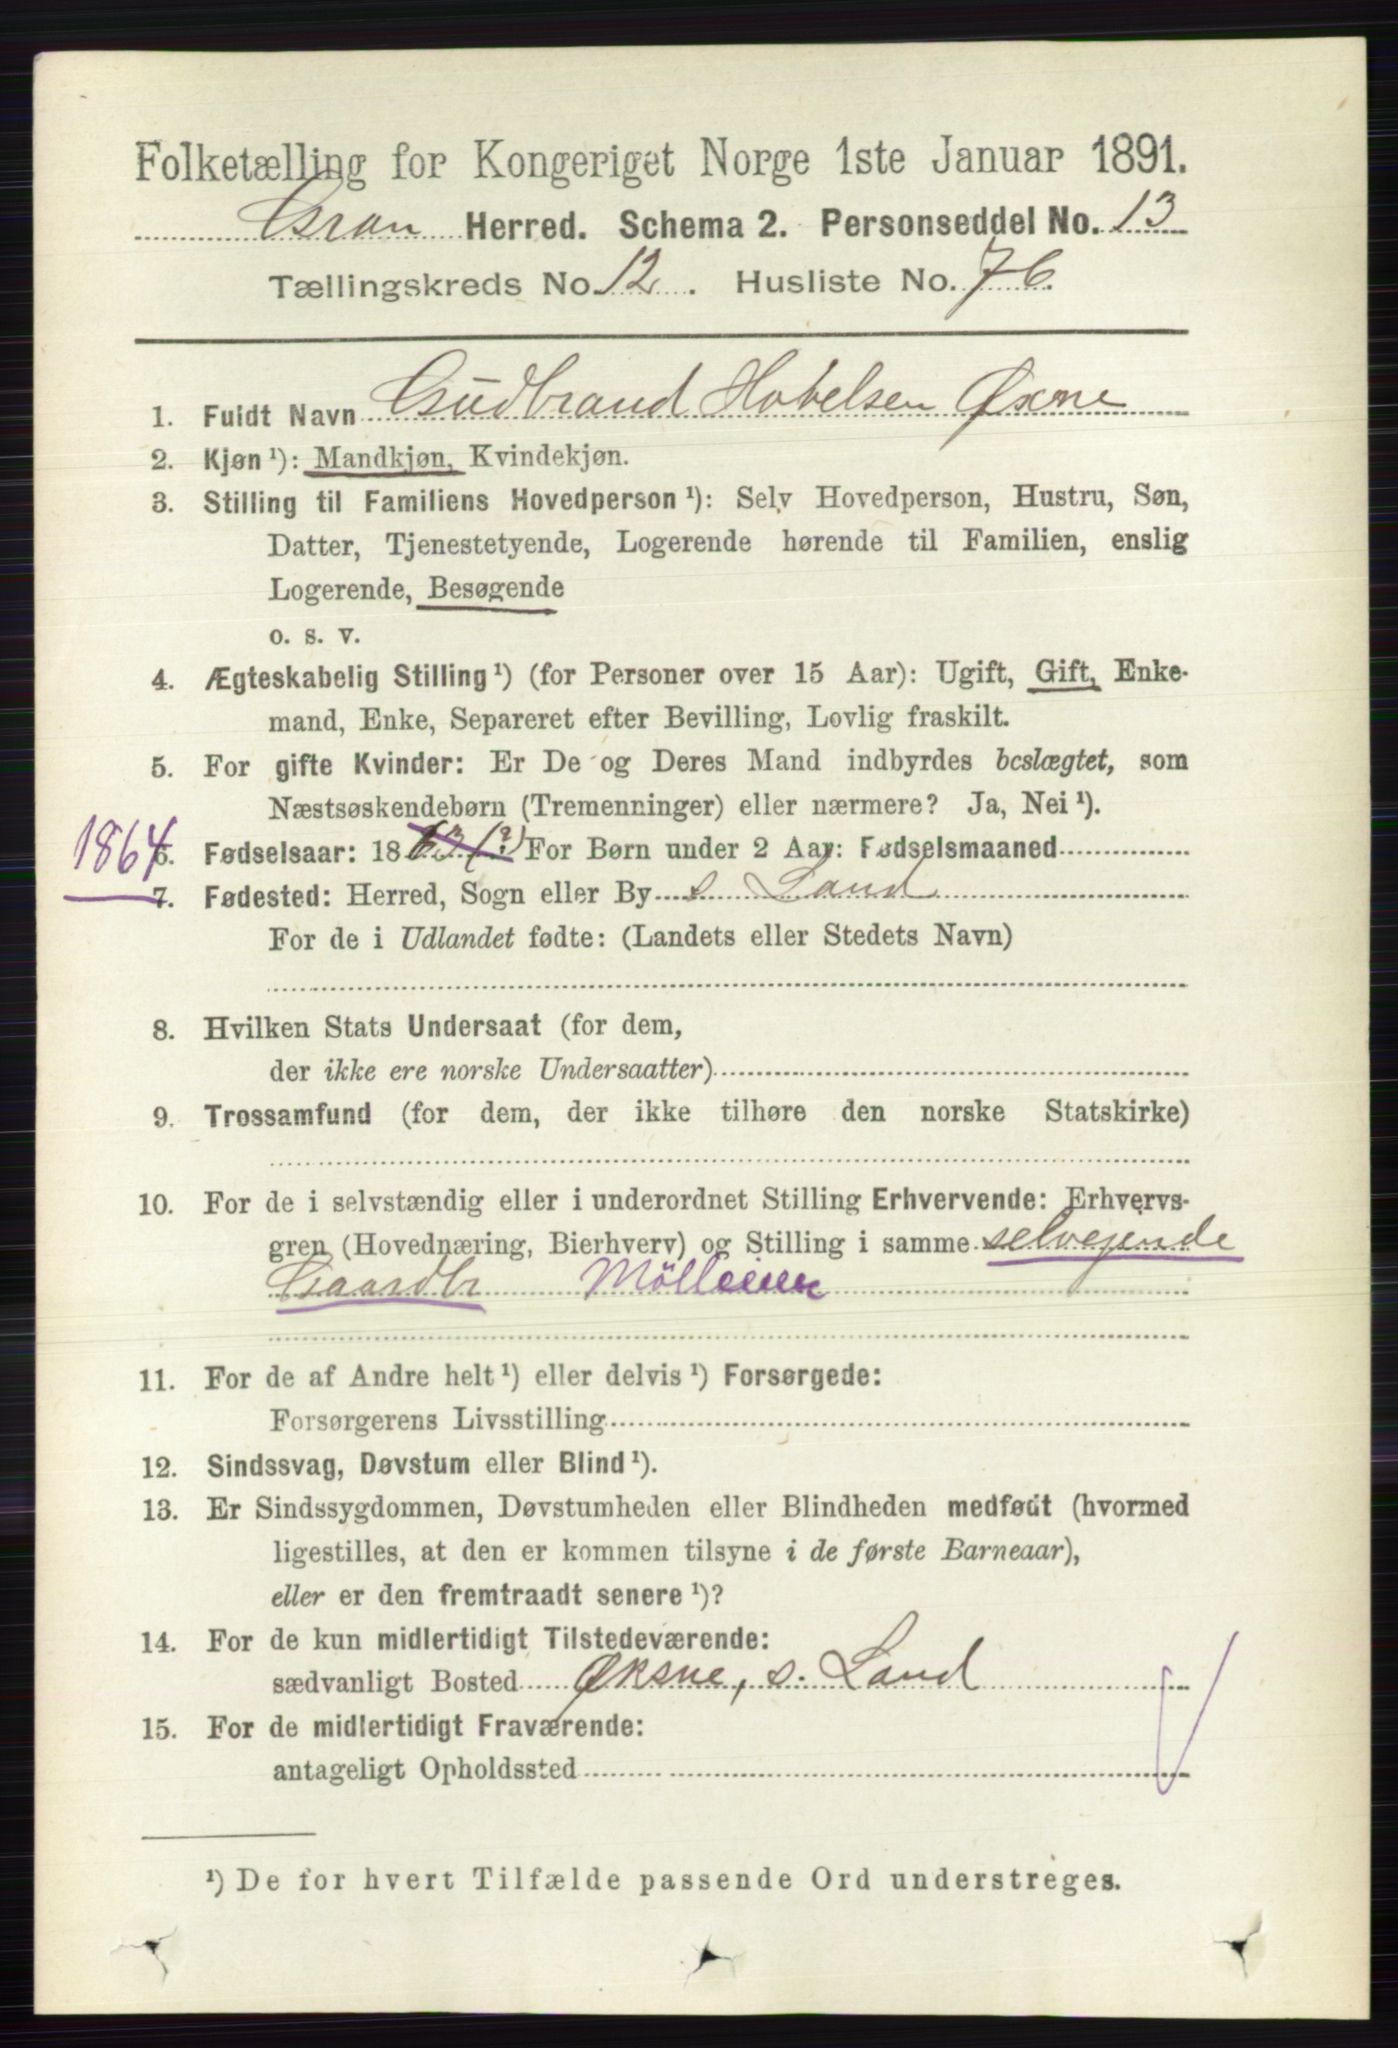 Folketælling for Kongeriget Norge 1ste Januar 1891.
Gran Herred. Schema 2. Personseddel No. 13
Tællingskreds No. 12. Husliste No. 76.
1. Fuldt Navn Gudbrand Hovelsen Øxne
2. Kjøn ¹): Mandkjøn, Kvindekjøn.
3. Stilling til Familiens Hovedperson ¹): Selv Hovedperson, Hustru, Søn,
Datter, Tjenestetyende, Logerende hørende til Familien, enslig
Logerende, Besøgende
o. s. v.
4. Ægteskabelig Stilling ¹) (for Personer over 15 Aar): Ugift, Gift, Enke-
mand, Enke, Separeret efter Bevilling, Lovlig fraskilt.
5. For gifte Kvinder: Er De og Deres Mand indbyrdes beslægtet, som
Næstsøskendebørn (Tremenninger) eller nærmere? Ja, Nei ¹).
1864
6. Fødselsaar: 1863 (?) For Børn under 2 Aar: Fødselsmaaned
7. Fødested: Herred, Sogn eller By s. Land
For de i Udlandet fødte: (Landets eller Stedets Navn)
8. Hvilken Stats Undersaat (for dem,
der ikke ere norske Undersaatter)
9. Trossamfund (for dem, der ikke tilhøre den norske Statskirke)
10. For de i selvstændig eller i underordnet Stilling Erhvervende: Erhvervs-
gren (Hovednæring, Bierhverv) og Stilling i samme selvejende
Gaardbr Mölleier
11. For de af Andre helt ¹) eller delvis ¹) Forsørgede:
Forsørgerens Livsstilling
12. Sindssvag, Døvstum eller Blind ¹).
13. Er Sindssygdommen, Døvstumheden eller Blindheden medfødt (hvormed
ligestilles, at den er kommen tilsyne i de første Barneaar),
eller er den fremtraadt senere ¹)?
14. For de kun midlertidigt Tilstedeværende:
sædvanligt Bosted Øksne, s. Land
15. For de midlertidigt Fraværende:
antageligt Opholdssted
¹) De for hvert Tilfælde passende Ord understreges.